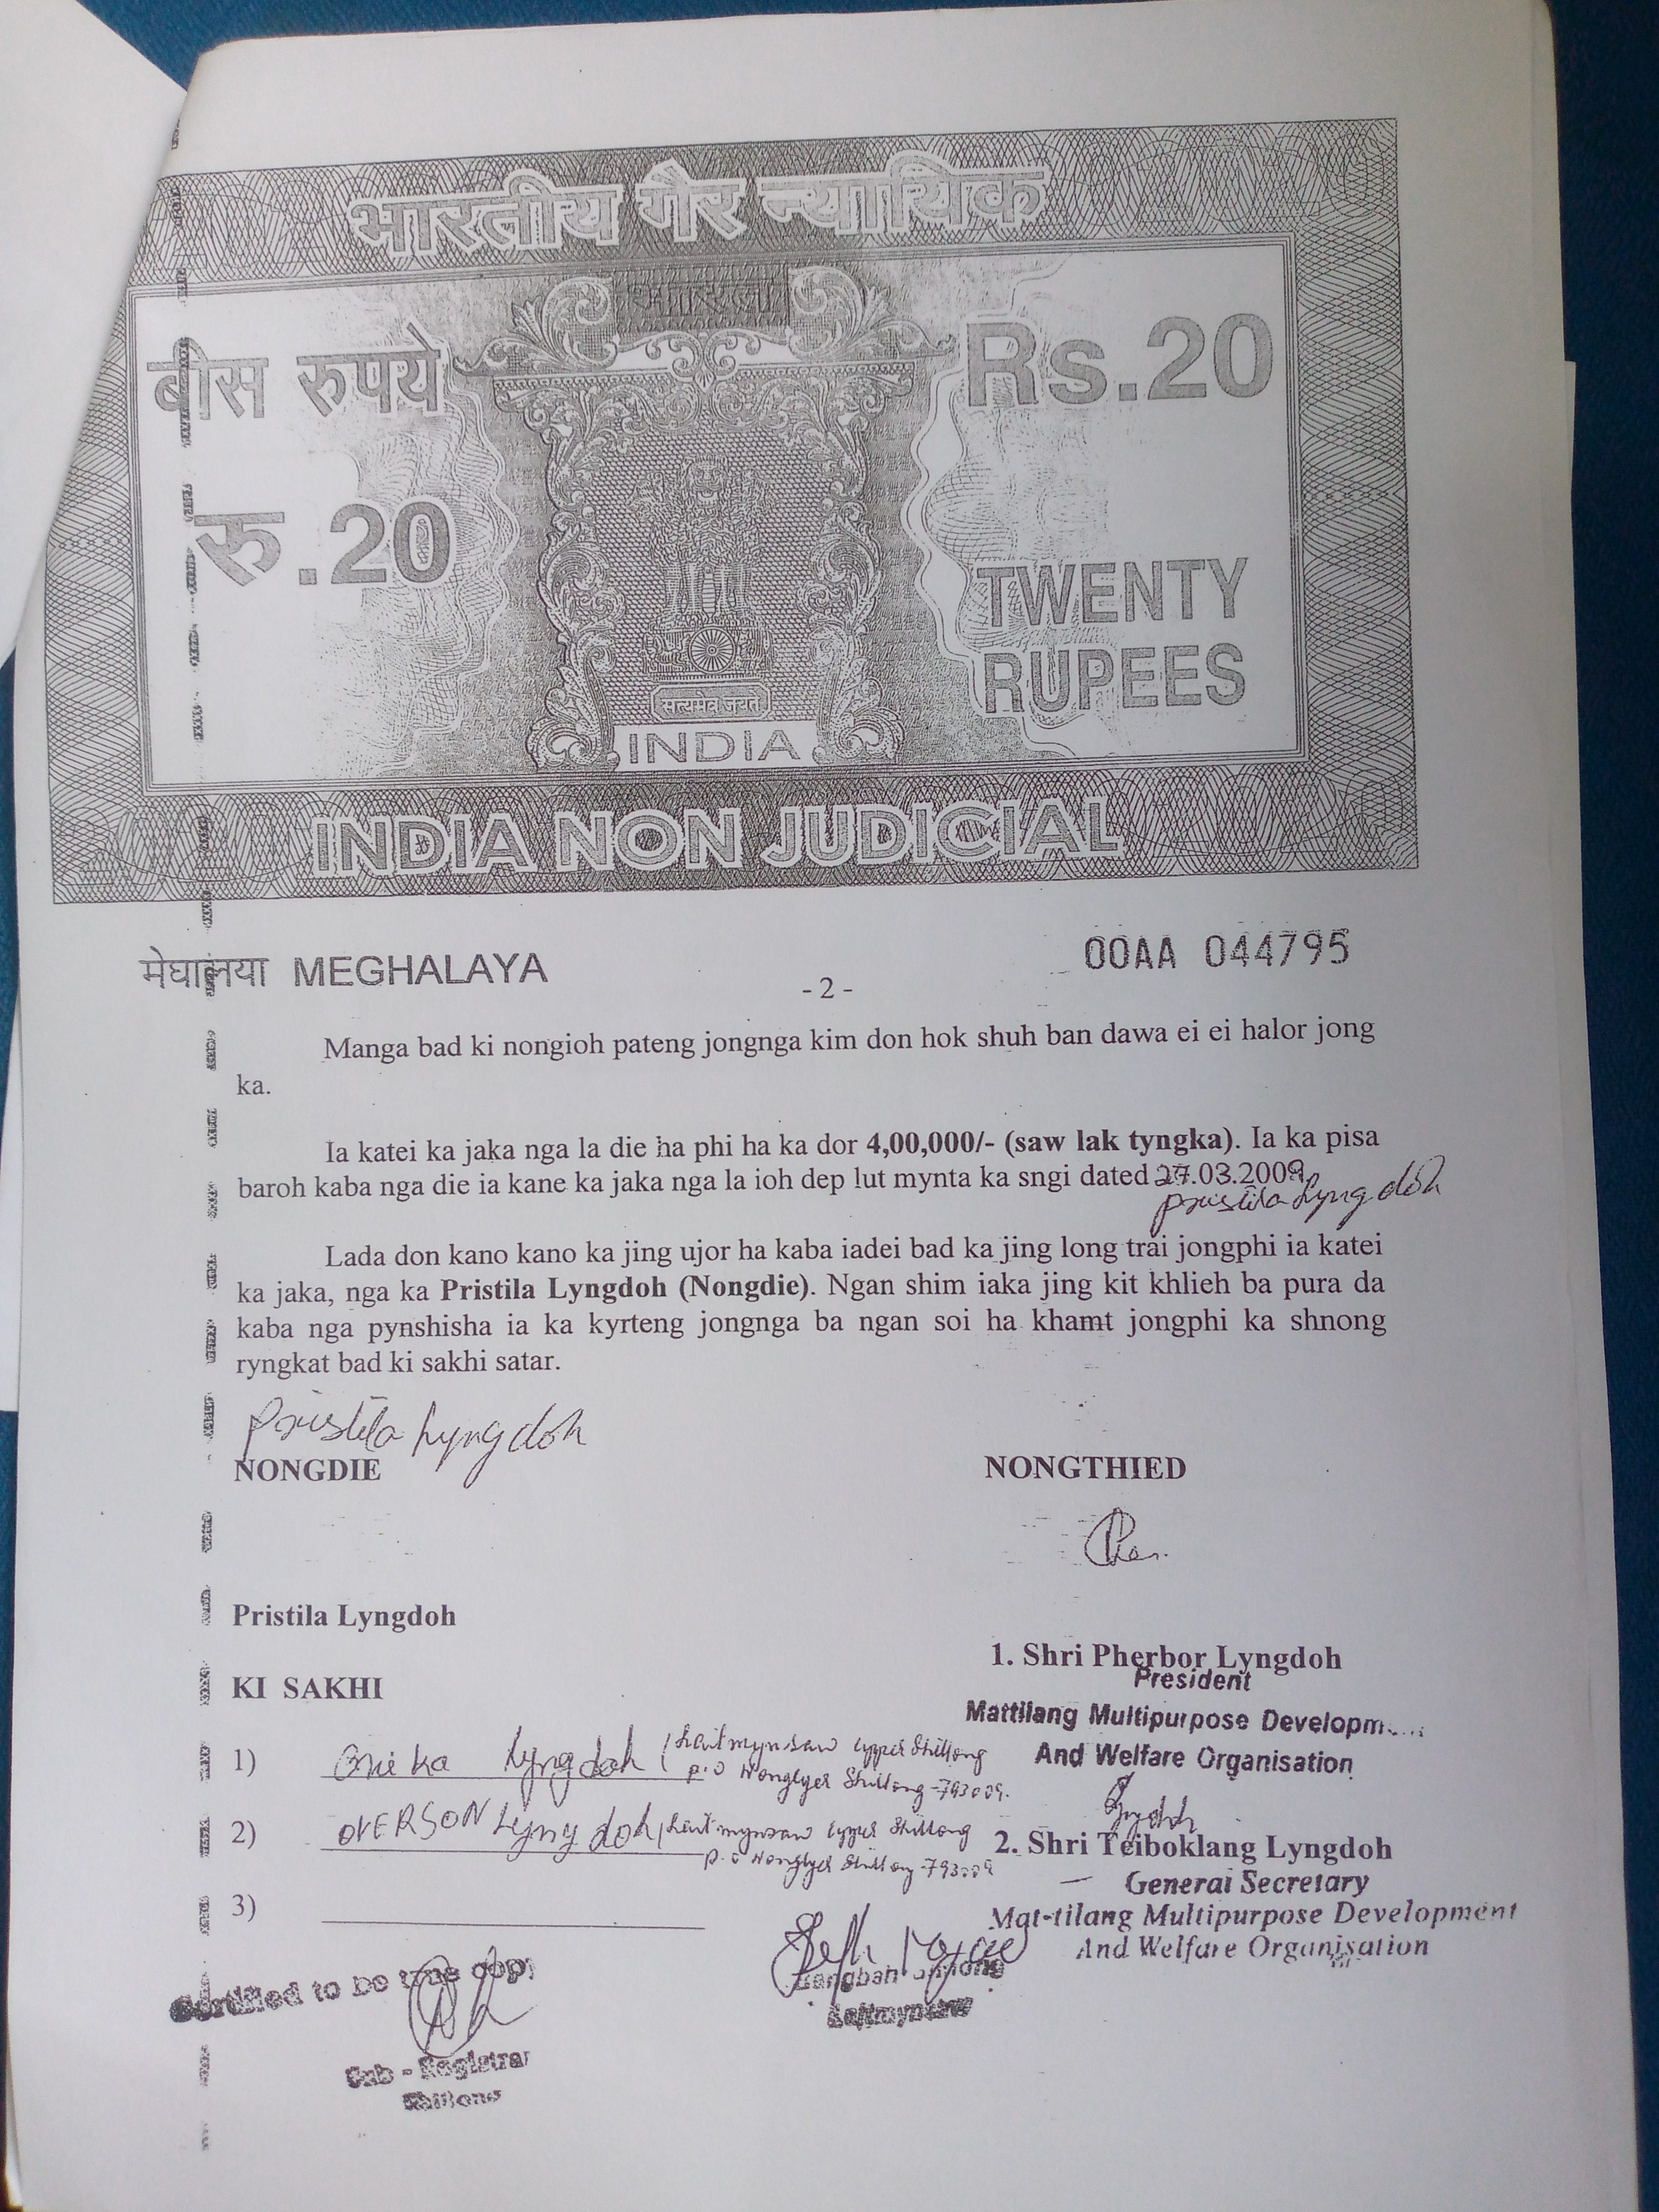 भारतीय गैर न्यायिक
बीस रुपये
Rs.20
रु.20
TWENTY
RUPEES
सत्यमेव जयते
INDIA
INDIA NON JUDICIAL
मेघालया MEGHALAYA
00AA 044795
- 2 -
Manga bad ki nongioh pateng jongnga kim don hok shuh ban dawa ei ei halor jong
ka.
Ia katei ka jaka nga la die ha phi ha ka dor 4,00,000/- (saw lak tyngka). Ia ka pisa
baroh kaba nga die ia kane ka jaka nga la ioh dep lut mynta ka sngi dated 27.03.2009
Pristila Lyngdoh
Lada don kano kano ka jing ujor ha kaba iadei bad ka jing long trai jongphi ia katei
ka jaka, nga ka Pristila Lyngdoh (Nongdie). Ngan shim iaka jing kit khlieh ba pura da
kaba nga pynshisha ia ka kyrteng jongnga ba ngan soi ha khamt jongphi ka shnong
ryngkat bad ki sakhi satar.
Pristila Lyngdoh
NONGDIE
NONGTHIED
Pristila Lyngdoh
1. Shri Pherbor Lyngdoh
President
Mattilang Multipurpose
And Welfare Organisation
KI SAKHI
1) Lyngdoh Upper Shillong
P.O Shillong-793009.
2) OVERSON Lyngdoh, Upper Shillong
P.O Shillong-793009
2. Shri Teiboklang Lyngdoh
General Secretary
Mat-tilang Multipurpose Development
And Welfare Organisation
3)
Certified to be true copy
Sub - Registrar
Shillong